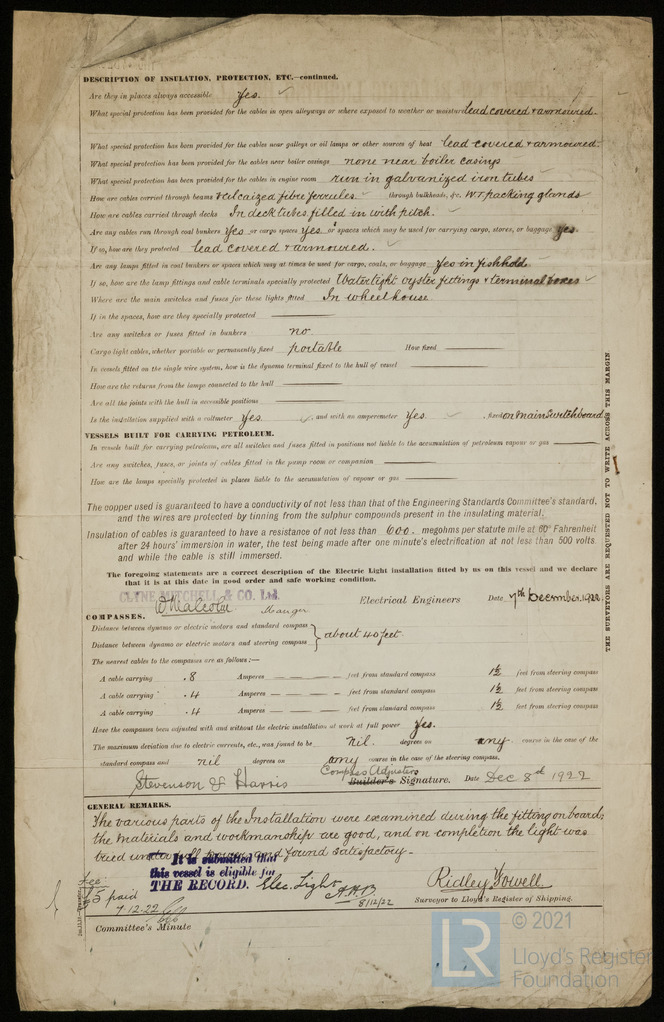 DESCRIPTION OF INSULATION, PROTECTION, ETC.—continued.
Are they in places always accessible Yes.
What special protection has been provided for the cables in open alleyways or where exposed to weather or moisture lead covered & armoured.
What special protection has been provided for the cables near galleys or oil lamps or other sources of heat lead covered & armoured.
What special protection has been provided for the cables near boiler casings none near boiler casings
What special protection has been provided for the cables in engine room run in galvanized iron tubes
How are cables carried through beams & vulcaized fibre ferrules. through bulkheads, &c. W.T. packing glands
How are cables carried through decks In deck tubes filled in with pitch.
Are any cables run through coal bunkers Yes or cargo spaces Yes or spaces which may be used for carrying cargo, stores, or baggage yes.
If so, how are they protected lead covered & armoured.
Are any lamps fitted in coal bunkers or spaces which may at times be used for cargo, coals, or baggage Yes in fishhold
If so, how are the lamp fittings and cable terminals specially protected Watertight oyster fittings & terminal boxes
Where are the main switches and fuses for these lights fitted In wheelhouse
If in the spaces, how are they specially protected
Are any switches or fuses fitted in bunkers no
Cargo light cables, whether portable or permanently fixed portable How fixed
In vessels fitted on the single wire system, how is the dynamo terminal fixed to the hull of vessel
How are the returns from the lamps connected to the hull
Are all the joints with the hull in accessible positions
Is the installation supplied with a voltmeter Yes , and with an amperemeter Yes , fixed on Main Switchboard
VESSELS BUILT FOR CARRYING PETROLEUM.
In vessels built for carrying petroleum, are all switches and fuses fitted in positions not liable to the accumulation of petroleum vapour or gas
Are any switches, fuses, or joints of cables fitted in the pump room or companion
How are the lamps specially protected in places liable to the accumulation of vapour or gas
The copper used is guaranteed to have a conductivity of not less than that of the Engineering Standards Committee's standard,
and the wires are protected by tinning from the sulphur compounds present in the insulating material.
Insulation of cables is guaranteed to have a resistance of not less than 600. megohms per statute mile at 60° Fahrenheit
after 24 hours' immersion in water, the test being made after one minute's electrification at not less than 500 volts
and while the cable is still immersed.
The foregoing statements are a correct description of the Electric Light installation fitted by us on this vessel and we declare
that it is at this date in good order and safe working condition.
CLYNE MITCHELL & CO. Ltd.
Malcolm Manager Electrical Engineers Date 7th December. 1922
COMPASSES.
Distance between dynamo or electric motors and standard compass
about 40 feet
Distance between dynamo or electric motors and steering compass
The nearest cables to the compasses are as follows:—
A cable carrying .8 Amperes feet from standard compass 1½ feet from steering compass
A cable carrying .4 Amperes feet from standard compass 1½ feet from steering compass
A cable carrying .4 Amperes feet from standard compass 1½ feet from steering compass
Have the compasses been adjusted with and without the electric installation at work at full power Yes.
The maximum deviation due to electric currents, etc., was found to be Nil. degrees on any course in the case of the
standard compass and nil degrees on any course in the case of the steering compass.
Compass Adjusters
Stevenson & Harris Builder's Signature. Date Dec 8th 1922
GENERAL REMARKS.
The various parts of the Installation were examined during the fitting on board,
the materials and workmanship are good, and on completion the light was
tried under full power and found satisfactory.
It is submitted that
this vessel is eligible for
THE RECORD. Elec. Light
8/12/22
Fee
£5 paid
7.12.22
Ridley Fowell.
Surveyor to Lloyd's Register of Shipping.
Committee's Minute
THE SURVEYORS ARE REQUESTED NOT TO WRITE ACROSS THIS MARGIN
LR
© 2021
Lloyd's Register
Foundation